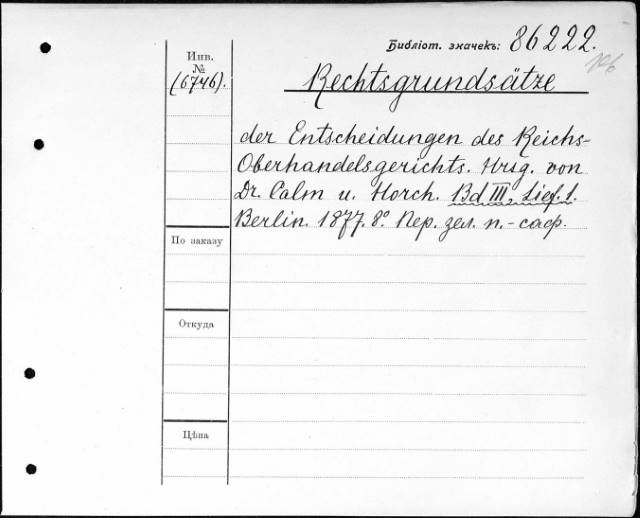 Библіот. значекъ: 86222.
Инв.
№
(6746).
Rechtsgrundsätze
der Entscheidungen des Reichs-
Oberhandelsgerichts. Hrsg. von
Dr. Calm u. Horch. Bd III, Lief. 1.
Berlin. 1877. 8° Пер. зел. п.-саф.
По заказу
Откуда
Цѣна